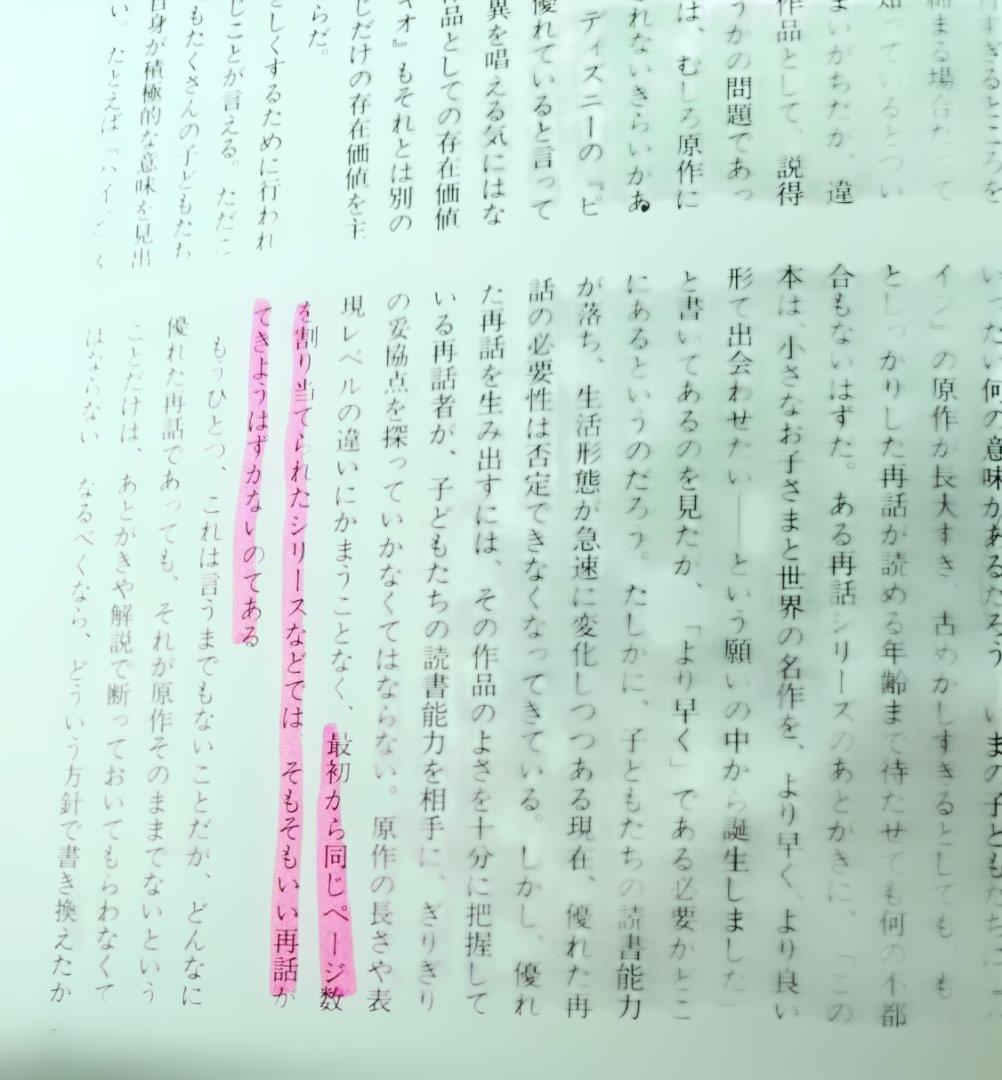 すぎるところを
まる場合だって
知っているとつい
まいがちだが、違
作品として、説得
うかの問題であっ
は、むしろ原作に
されないきらいがあ
ディズニーの『ピ
優れていると言って
異を唱える気にはな
作品としての存在価値
キオ』もそれとは別の
じだけの存在価値を主
らだ。
しくするために行われ
じことが言える。ただこ
もたくさんの子どもたち
自身が積極的な意味を見出
い。たとえば『ハイジ』
いったい何の意味があるだろう。いまの子どもたちに『ハ
イジ』の原作が長大すぎ、古めかしすぎるとしても、もっ
としっかりした再話が読める年齢まで待たせても何の不都
合もないはずだ。ある再話シリーズのあとがきに、「この
本は、小さなお子さまと世界の名作を、より早く、より良い
形で出会わせたい――という願いの中から誕生しました」
と書いてあるのを見たが、「より早く」である必要がどこ
にあるというのだろう。たしかに、子どもたちの読書能力
が落ち、生活形態が急速に変化しつつある現在、優れた再
話の必要性は否定できなくなってきている。しかし、優れ
た再話を生み出すには、その作品のよさを十分に把握して
いる再話者が、子どもたちの読書能力を相手に、ぎりぎり
の妥協点を探っていかなくてはならない。原作の長さや表
現レベルの違いにかまうことなく、最初から同じページ数
を割り当てられたシリーズなどでは、そもそもいい再話が
できようはずがないのである
もうひとつ、これは言うまでもないことだが、どんなに
優れた再話であっても、それが原作そのままでないという
ことだけは、あとがきや解説で断っておいてもらわなくて
はならない　なるべくなら、どういう方針で書き換えたか